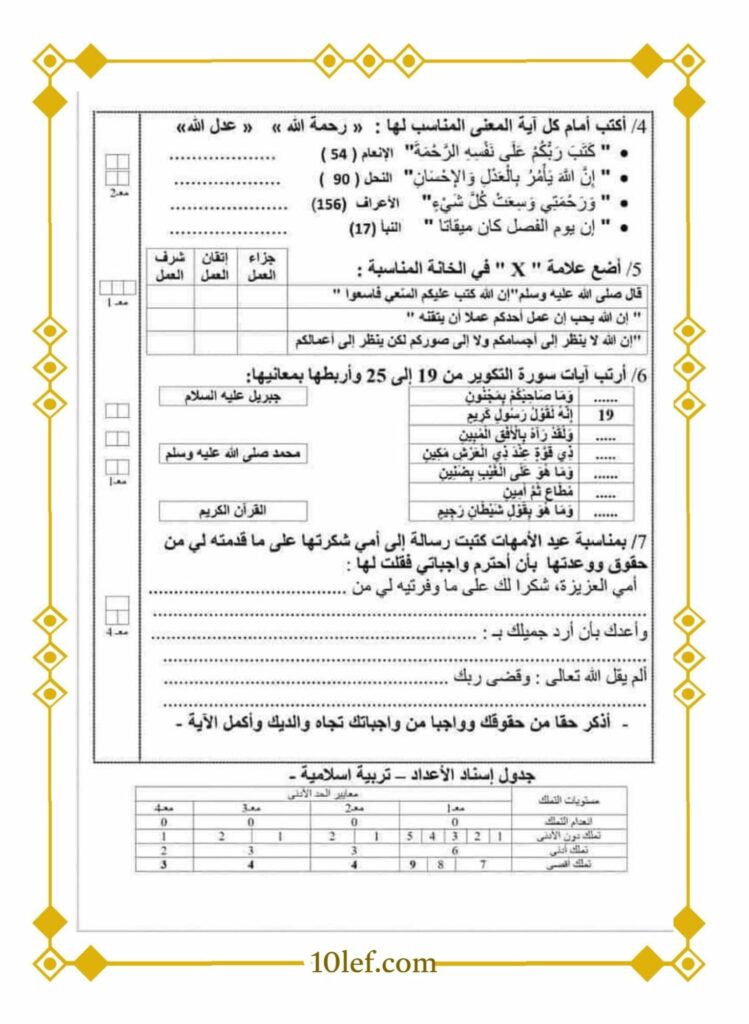 4/ أكتب أمام كل آية المعنى المناسب لها : « رحمة الله » « عدل الله»
• " كَتَبَ رَبُّكُمْ عَلَى نَفْسِهِ الرَّحْمَةَ" الإنعام ( 54 ) ...................
• " إِنَّ اللَّهَ يَأْمُرُ بِالْعَدْلِ وَالإِحْسَانِ" النحل ( 90 ) ...................
• " وَرَحْمَتِي وَسِعَتْ كُلَّ شَيْءٍ" الأعراف (156) .....................
• " إن يوم الفصل كان ميقاتا " النبأ (17) ......................
معـ2
5/ أضع علامة " X " في الخانة المناسبة :
جزاء العمل
إتقان العمل
شرف العمل
قال صلى الله عليه وسلم"إن الله كتب عليكم السّعي فاسعوا "
" إن الله يحب إن عمل أحدكم عملا أن يتقنه "
"إن الله لا ينظر إلى أجسامكم ولا إلى صوركم لكن ينظر إلى أعمالكم
معـ1
6/ أرتب آيات سورة التكوير من 19 إلى 25 وأربطها بمعانيها:
...... وَمَا صَاحِبُكُمْ بِمَجْنُونٍ
19 إِنَّهُ لَقَوْلُ رَسُولٍ كَرِيمٍ
..... وَلَقَدْ رَآهُ بِالْأُفُقِ الْمُبِينِ
..... ذِي قُوَّةٍ عِنْدَ ذِي الْعَرْشِ مَكِينٍ
...... وَمَا هُوَ عَلَى الْغَيْبِ بِضَنِينٍ
..... مُطَاعٍ ثَمَّ أَمِينٍ
...... وَمَا هُوَ بِقَوْلِ شَيْطَانٍ رَجِيمٍ
جبريل عليه السلام
محمد صلى الله عليه وسلم
القرآن الكريم
معـ1
7/ بمناسبة عيد الأمهات كتبت رسالة إلى أمي شكرتها على ما قدمته لي من
حقوق ووعدتها بأن أحترم واجباتي فقلت لها :
أمي العزيزة، شكرا لك على ما وفرتيه لي من ...................................
.......................................................................................
وأعدك بأن أرد جميلك بـ : ..........................................................
.......................................................................................
ألم يقل الله تعالى : وقضى ربك ...................................................
.......................................................................................
- أذكر حقا من حقوقك وواجبا من واجباتك تجاه والديك وأكمل الآية -
معـ4
جدول إسناد الأعداد – تربية اسلامية -
مستويات التملك
معايير الحد الأدنى
معـ1 معـ2 معـ3 معـ4
انعدام التملك 0 0 0 0
تملك دون الأدنى 1 2 3 4 5 1 2 1 2 1
تملك أدنى 6 3 3 2
تملك أقصى 7 8 9 4 4 3
10lef.com